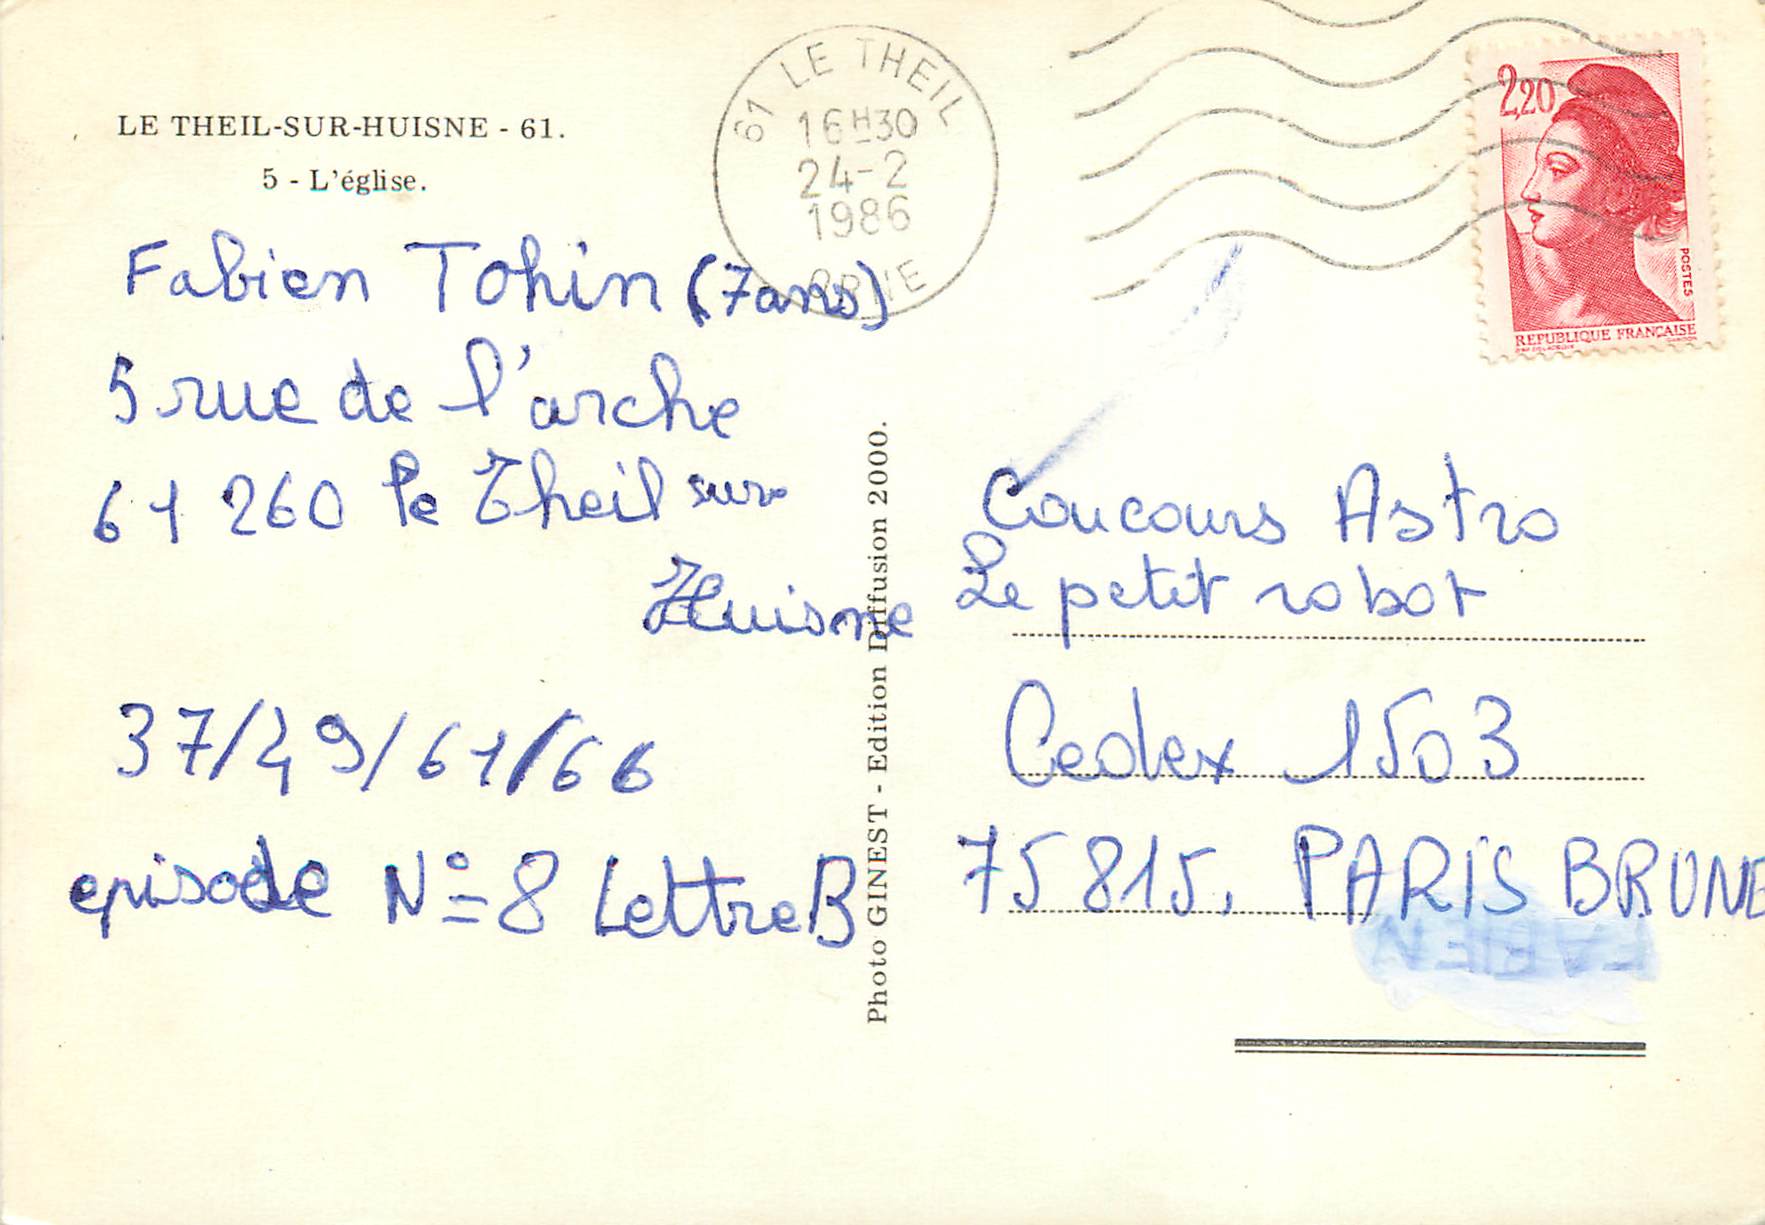 LE THEIL-SUR-HUISNE - 61.
5 - L'église.
61 LE THEIL
16H30
24-2
1986
ORNE
2,20
POSTES
REPUBLIQUE FRANÇAISE
Fabien Tohin (7ans)
5 rue de l'arche
61 260 le Theil sur
Huisne
37/49/61/66
episode N° 8 Lettre B
Photo GINEST - Edition Diffusion 2000.
Coucours Astro
Le petit robot
Cedex 1503
75815, PARIS BRUNE
FABIEN